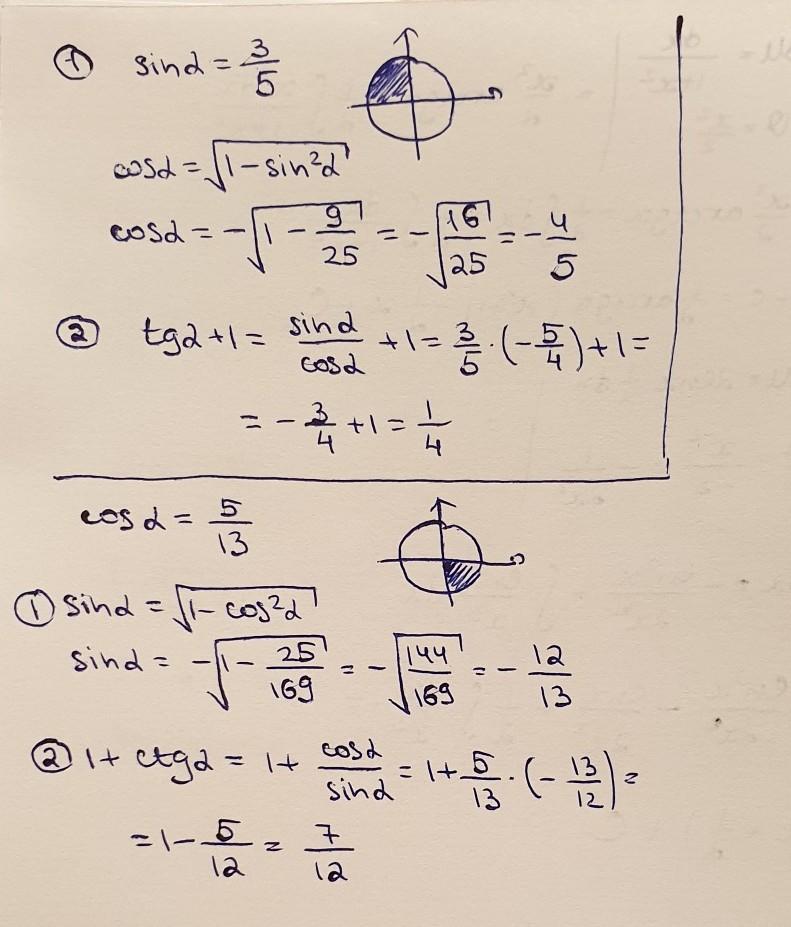 ① sinα = 3/5
cosα = √(1 - sin²α)
cosα = -√(1 - 9/25) = -√(16/25) = -4/5
② tgα + 1 = sinα/cosα + 1 = 3/5 · (-5/4) + 1 =
= -3/4 + 1 = 1/4
cosα = 5/13
① sinα = √(1 - cos²α)
sinα = -√(1 - 25/169) = -√(144/169) = -12/13
② 1 + ctgα = 1 + cosα/sinα = 1 + 5/13 · (-13/12) =
= 1 - 5/12 = 7/12